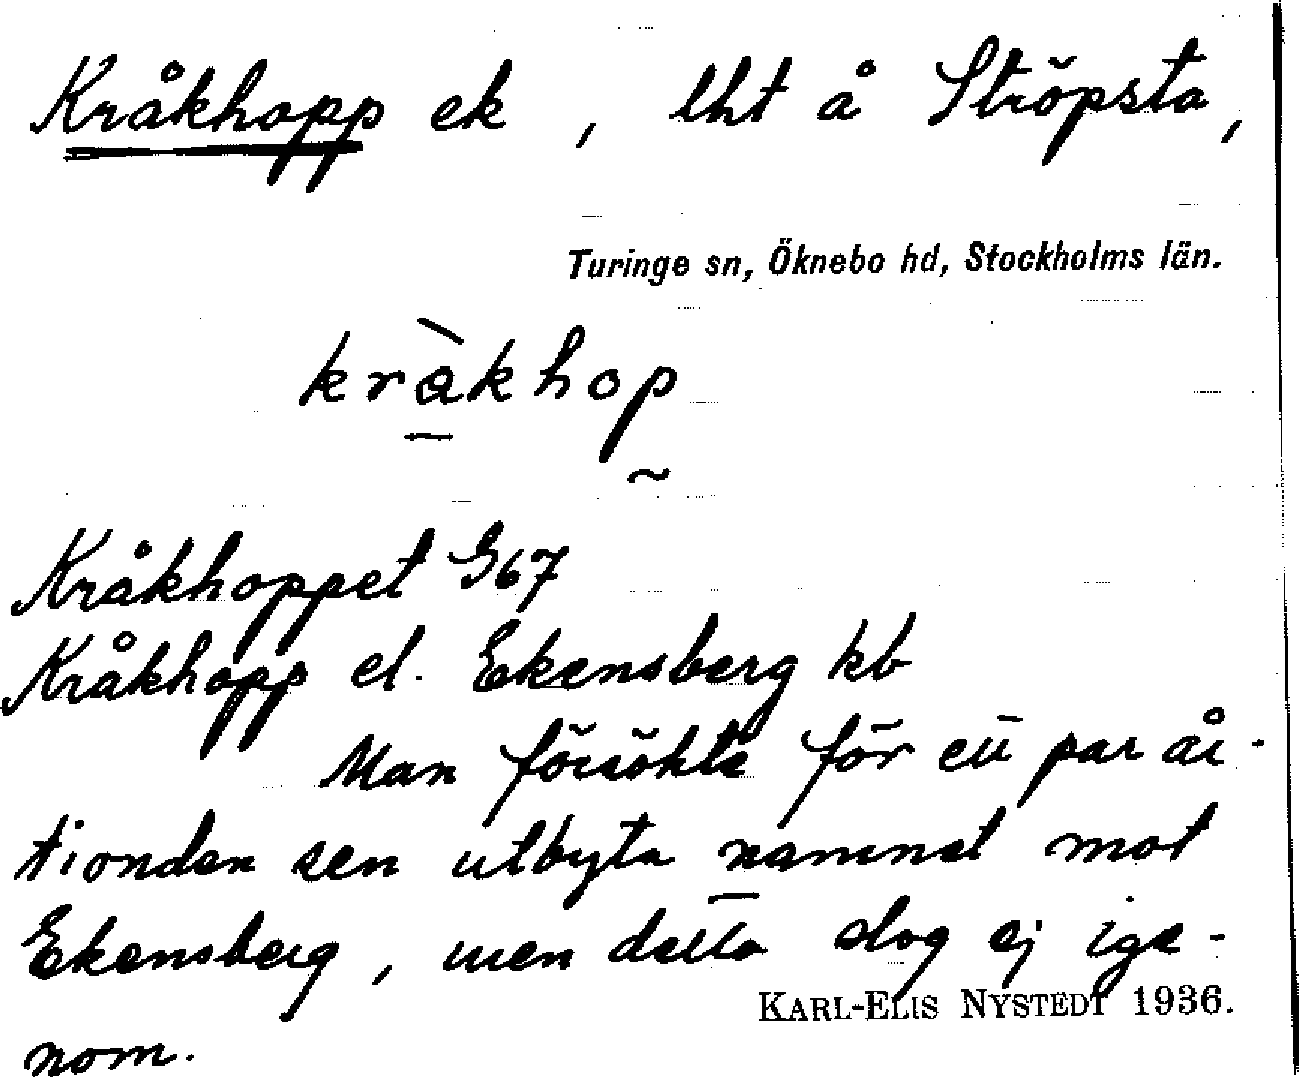 Kråkhopp ek, lht å Ströpsta,
Turinge sn, Öknebo hd, Stockholms län.
kràkhop
Kråkhoppet G67
Kråkhopp el. Ekensberg kb
Man försökte för ett par år-
tionden sen utbyta namnet mot
Ekensberg, men detta slog ej ige-
nom.
KARL-ELIS NYSTEDT 1936.